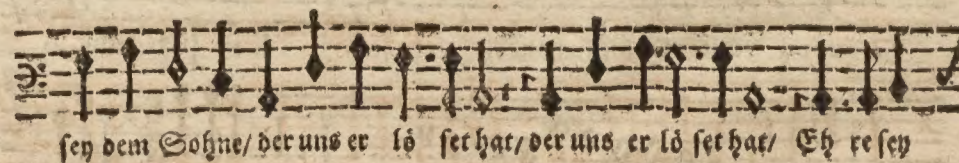 sey dem Sohne/ der uns er lö set hat/ der uns er lö set hat/ Eh re sey